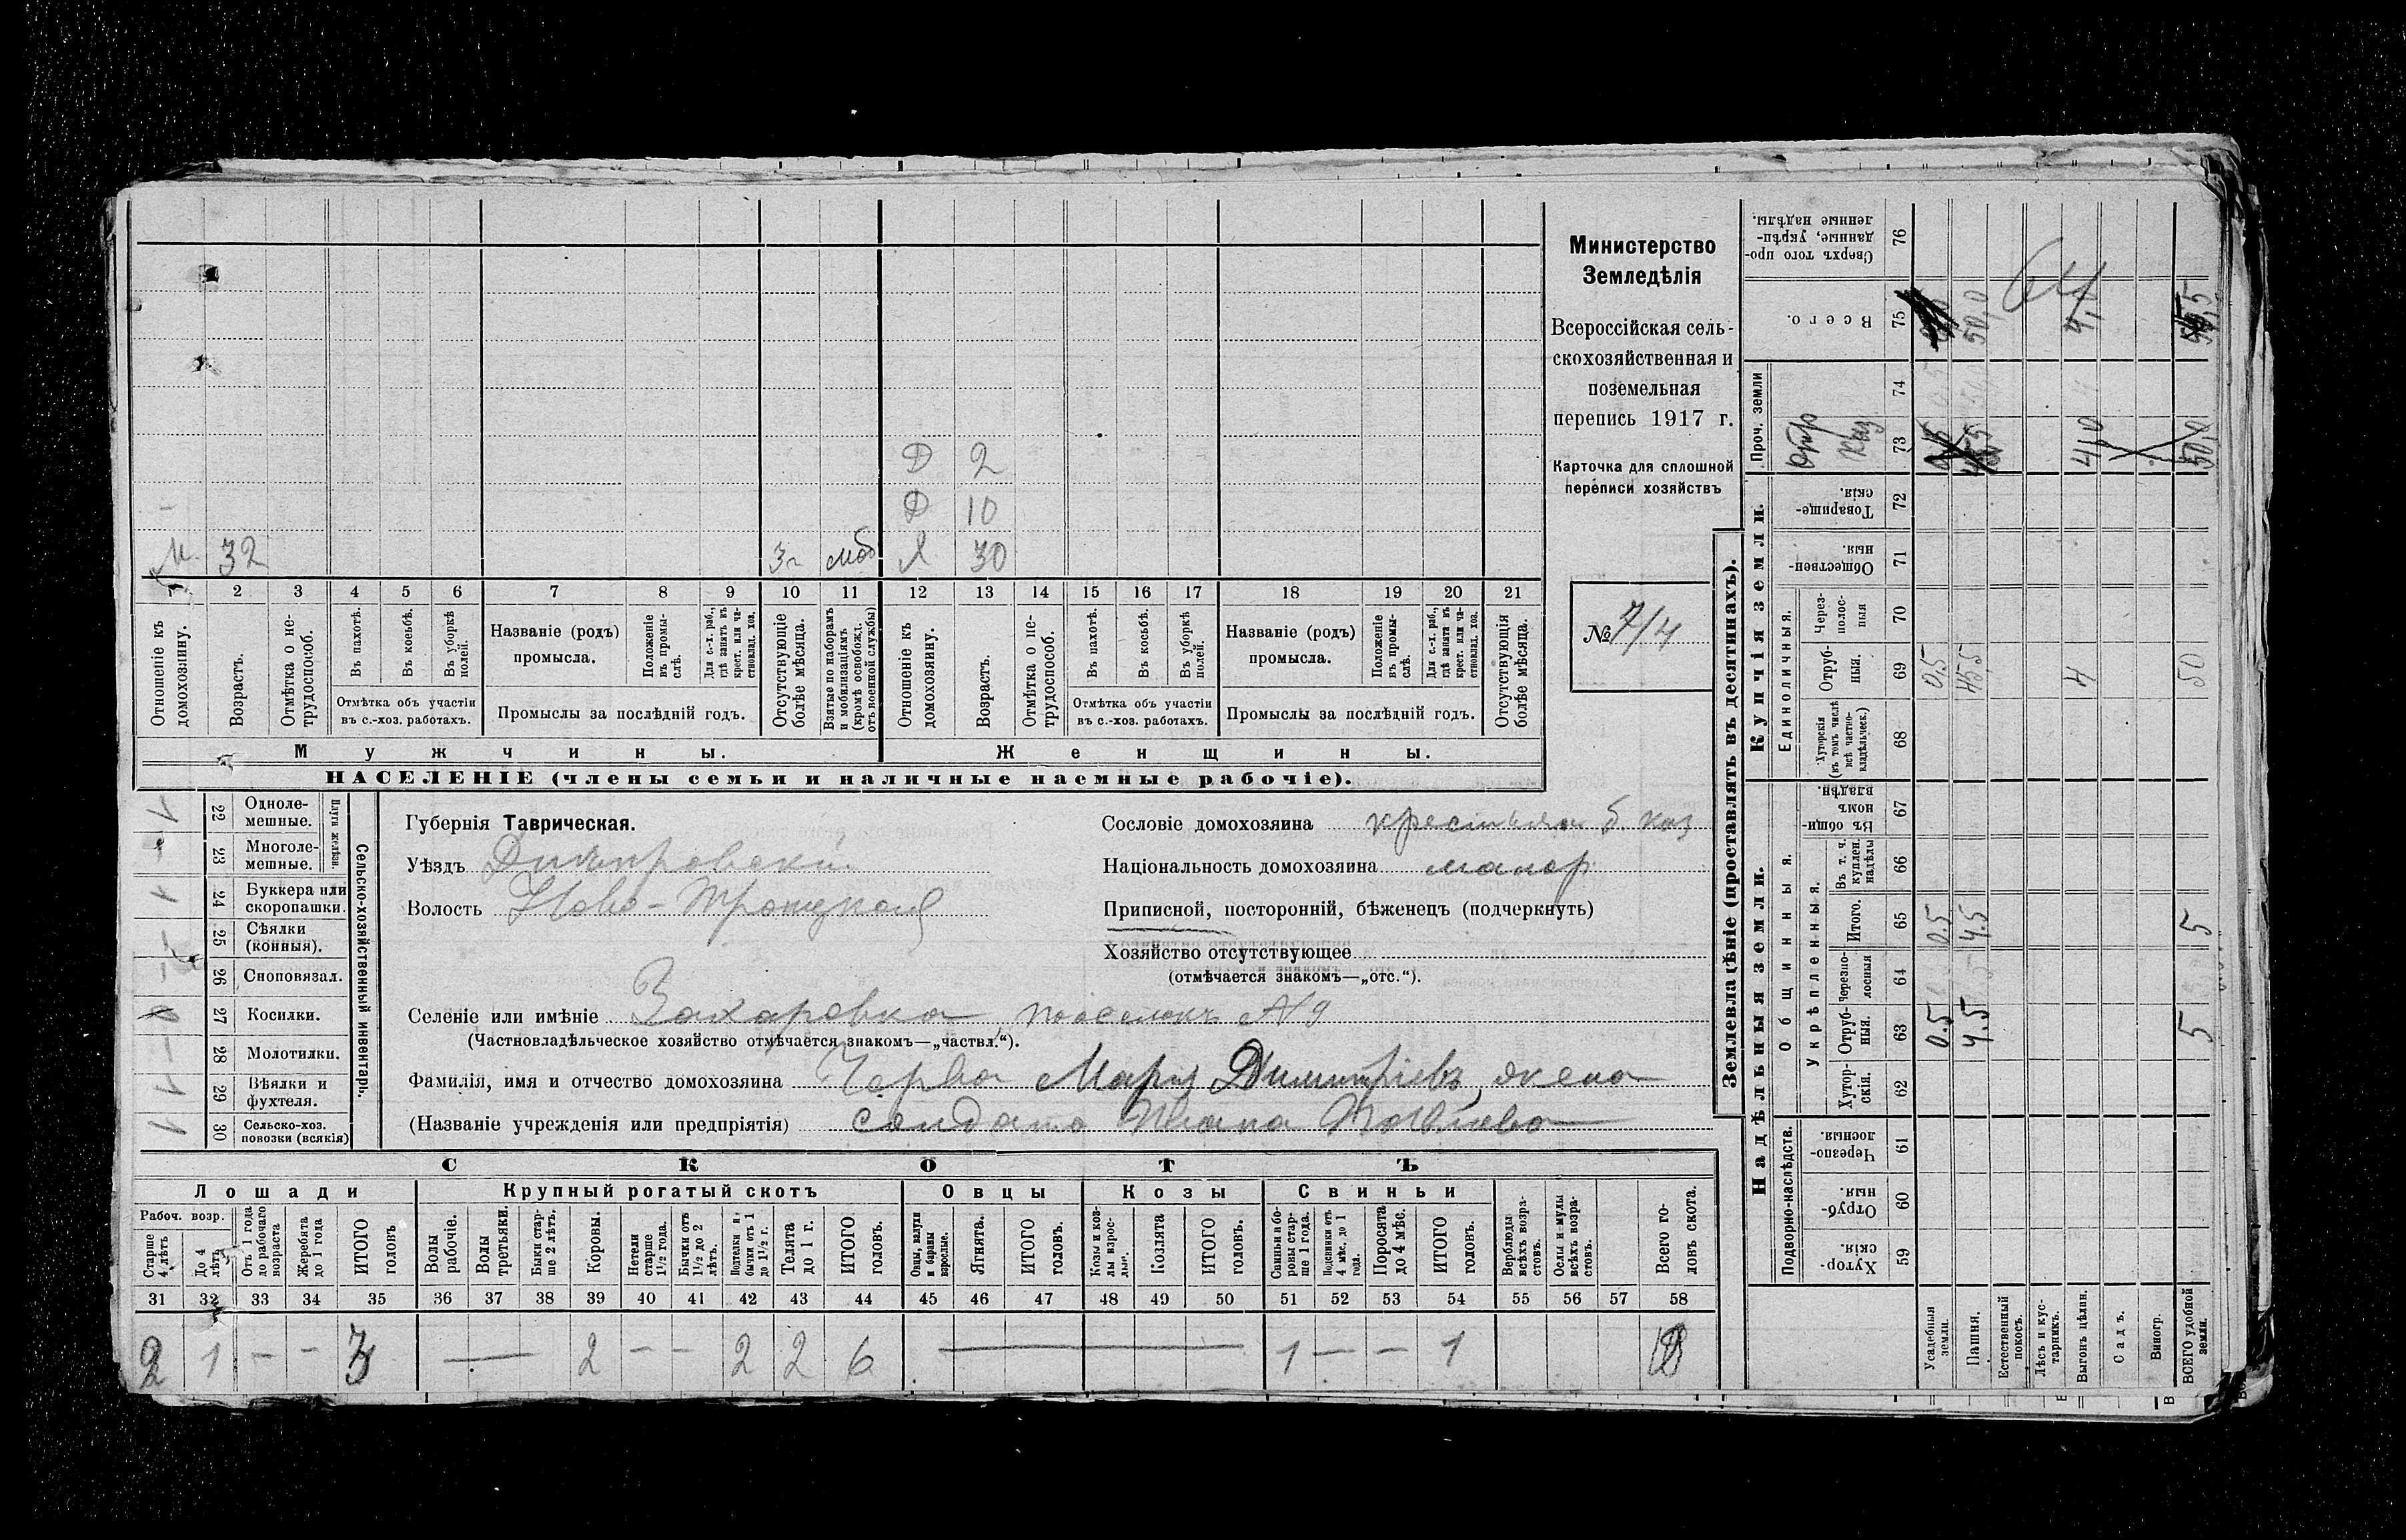 Министерство
Земледѣлія
Всероссійская сель-
скохозяйственная и
поземельная
перепись 1917 г.
Карточка для сплошной
переписи хозяйствъ
№ 7/4
Д 2
Д 10
М. 32 3 г моб Я 30
1 2 3 4 5 6 7 8 9 10 11 12 13 14 15 16 17 18 19 20 21
Отношеніе къ домохозяину.
Возрастъ.
Отмѣтка о не-трудоспособ.
Въ пахотѣ.
Въ косьбѣ.
Въ уборкѣ полей.
Отмѣтка объ участіи въ с.-хоз. работахъ.
Названіе (родъ) промысла.
Положеніе въ промы-слѣ.
Для с.-х. раб., гдѣ занятъ въ крест. или ча-стновлад. хоз.
Промыслы за послѣдній годъ.
Отсутствующіе болѣе мѣсяца.
Взятые по наборамъ и мобилизаціямъ (кромѣ освобожд. отъ военной службы)
Отношеніе къ домохозяину.
Возрастъ.
Отмѣтка о не-трудоспособ.
Въ пахотѣ.
Въ косьбѣ.
Въ уборкѣ полей.
Отмѣтка объ участіи въ с.-хоз. работахъ.
Названіе (родъ) промысла.
Положеніе въ промы-слѣ.
Для с.-х. раб., гдѣ занята въ крест. или ча-стновлад. хоз.
Промыслы за послѣдній годъ.
Отсутствующія болѣе мѣсяца.
Мужчины. Женщины.
НАСЕЛЕНІЕ (члены семьи и наличные наемные рабочіе).
Губернія Таврическая.
Уѣздъ Днѣпровскій
Волость Ново-Троицкая
Селеніе или имѣніе Захаровка, поселокъ №9
(Частновладѣльческое хозяйство отмѣчается знакомъ—„частвл.“).
Фамилія, имя и отчество домохозяина Черва Марія Димитріевъ, жена
(Названіе учрежденія или предпріятія) солдата
Сословіе домохозяина крестьян б. каз
Національность домохозяина малор
Приписной, посторонній, бѣженецъ (подчеркнуть)
Хозяйство отсутствующее
(отмѣчается знакомъ—„отс.“).
Сельско-хозяйственный инвентарь.
Плуги желѣзн.
22 Одноле-мешные. 1
23 Многоле-мешные. -
24 Буккера или скоропашки. 1
25 Сѣялки (конныя).
26 Сноповязал. -
27 Косилки.
28 Молотилки. -
29 Вѣялки и фухтеля. 1
30 Сельско-хоз. повозки (всякія)
СКОТЪ
Лошади Крупный рогатый скотъ Овцы Козы Свиньи
Рабоч. возр.
Старше 4 лѣтъ
До 4 лѣтъ
Отъ 1 года до рабочаго возраста
Жеребята до 1 года
ИТОГО головъ
Волы рабочіе.
Волы третьяки.
Быки стар-ше 2 лѣтъ.
Коровы.
Нетели старше 1½ года.
Бычки отъ 1½ до 2 лѣтъ.
Подтелки и бычки отъ 1 до 1½ г.
Телята до 1 г.
ИТОГО головъ.
Овцы, валухи и бараны взрослые.
Ягнята.
ИТОГО головъ.
Козы и коз-лы взрос-лые.
Козлята
ИТОГО головъ.
Свиньи и бо-ровы стар-ше 1 года.
Подсвинки отъ 4 мѣс. до 1 года.
Поросята до 4 мѣс.
ИТОГО головъ.
Верблюды всѣхъ возра-стовъ.
Ослы и мулы всѣхъ возра-стовъ.
Всего го-ловъ скота.
31 32 33 34 35 36 37 38 39 40 41 42 43 44 45 46 47 48 49 50 51 52 53 54 55 56 57 58
2 1 - - 3 — 2 - - 2 2 6 — 1 - - 1
Землевладѣніе (проставлять въ десятинахъ).
Купчія земли.
Надѣльныя земли.
Сверхъ того про-данные, укрѣп-ленные надѣлы. 76
Всего. 75 50,0 4,0
64
Проч. земли 74
73 4,0 50,0
Товарище-скія. 72
Обществен-ныя. 71
Единоличныя.
Через-полос-ныя 70
Отруб-ныя. 69 0,5 45,5 4 50
Хуторскія (въ томъ числѣ всѣ частно-владѣльческ.) 68
Общинныя.
Въ общи-номъ владѣн. 67
Укрѣпленныя.
Въ т. ч. куплен. надѣлы 66
Итого. 65 0.5 4.5 5
Черезпо-лосныя 64
Отруб-ныя. 63 0.5 4.5 5
Хутор-скія. 62
Подворно-наслѣдств.
Черезпо-лосныя. 61
Отруб-ныя. 60
Хутор-скія. 59
Усадебныя земли.
Пашня.
Естественный покосъ.
Лѣсъ и кус-тарникъ.
Выгонъ цѣлин.
Садъ.
Виногр.
ВСЕГО удобной земли.